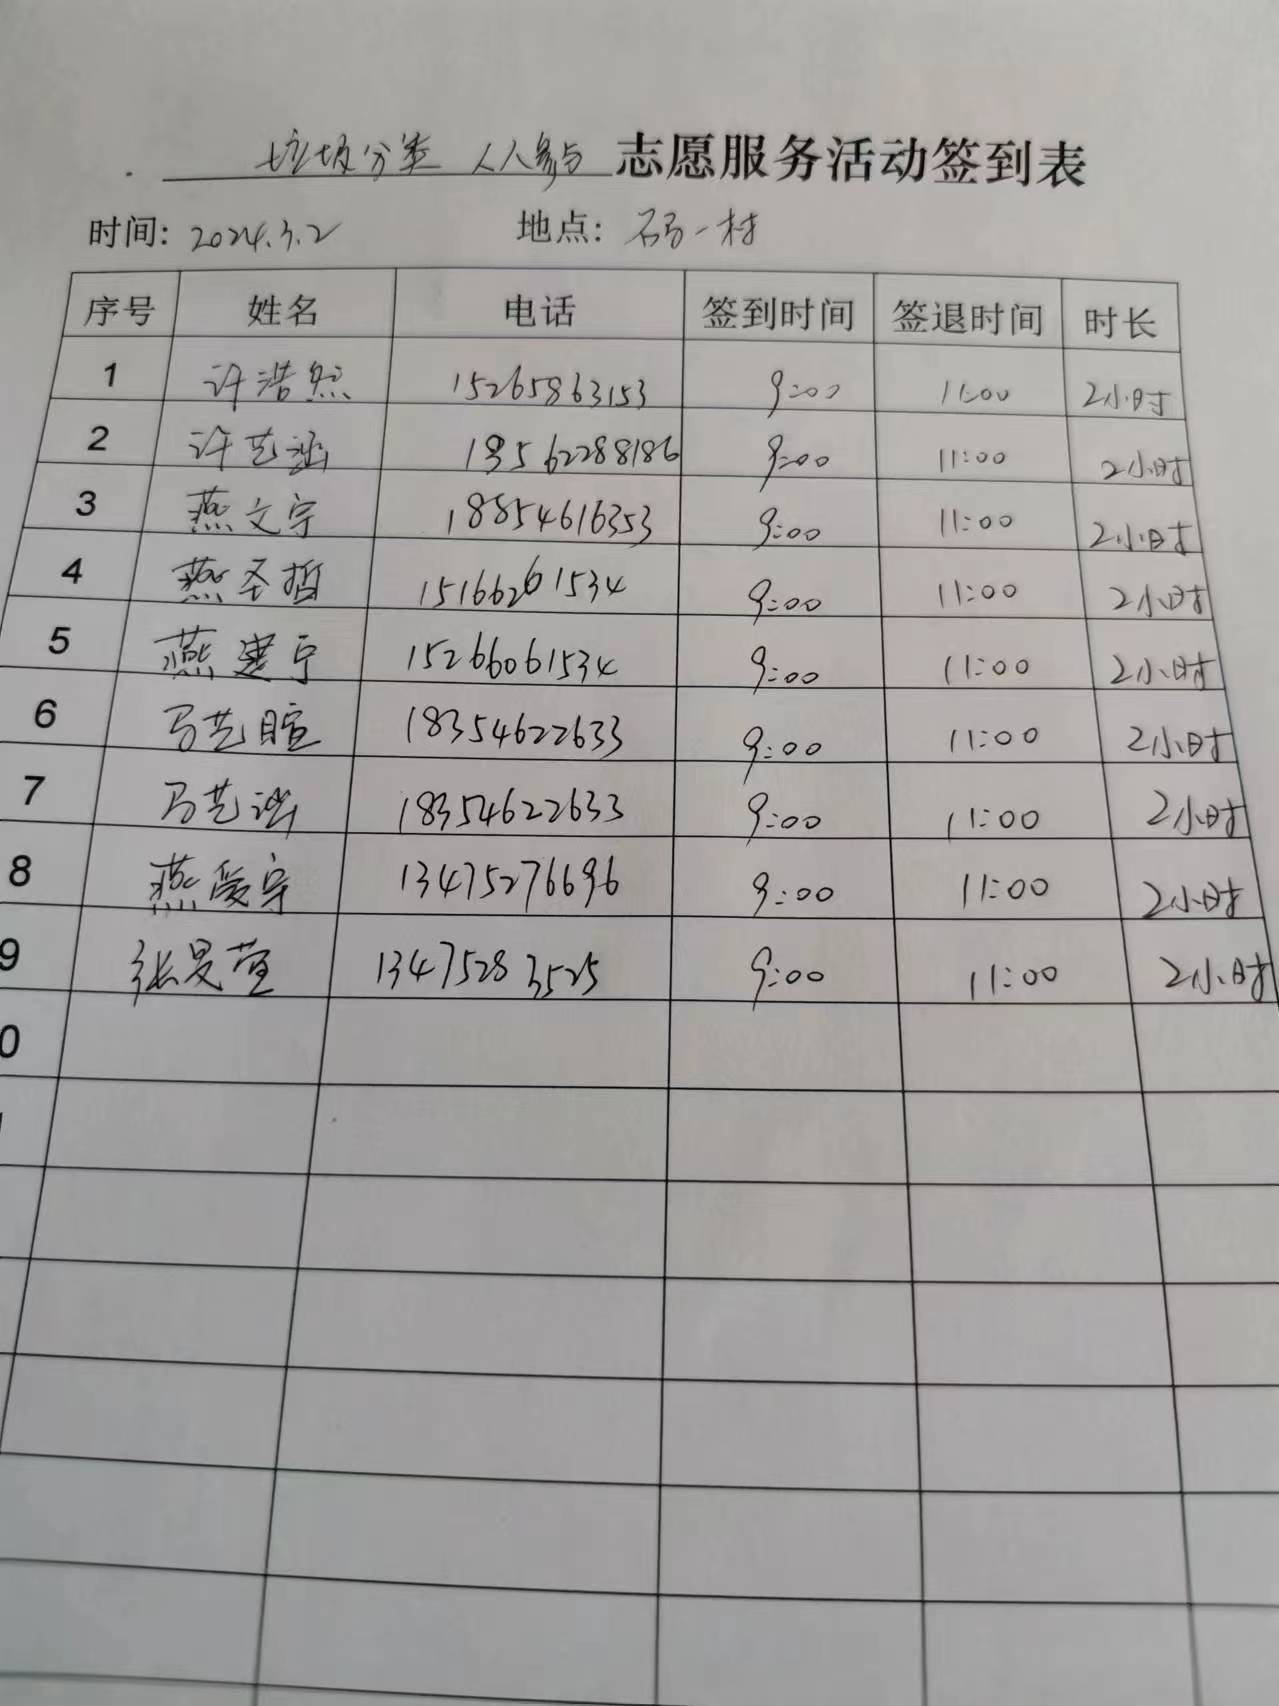 垃圾分类 人人参与 志愿服务活动签到表
时间: 2024.3.2 地点: 码一村
序号 姓名 电话 签到时间 签退时间 时长
1 许浩然 15265863153 9:00 11:00 2小时
2 许艺涵 13562288186 9:00 11:00 2小时
3 燕文宇 18854616353 9:00 11:00 2小时
4 燕圣哲 15166261534 9:00 11:00 2小时
5 燕建宁 15266061534 9:00 11:00 2小时
6 马艺暄 18354622633 9:00 11:00 2小时
7 马艺 18354622633 9:00 11:00 2小时
8 燕宇 13475276696 9:00 11:00 2小时
9 张昊萱 13475283525 9:00 11:00 2小时
0